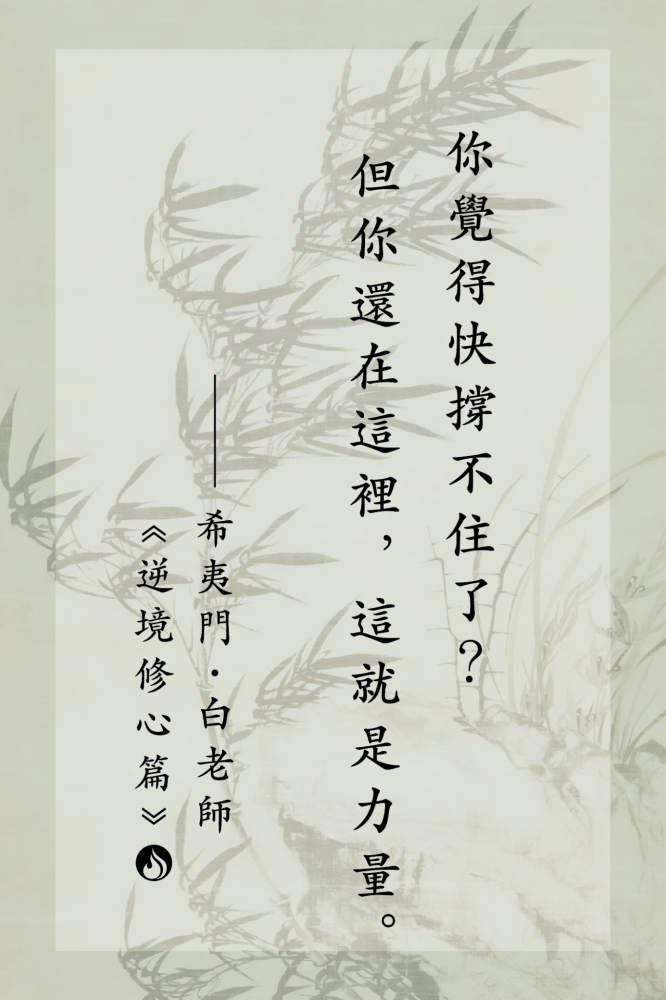 你覺得快撐不住了？
但你還在這裡，這就是力量。
——希夷門·白老師
《逆境修心篇》